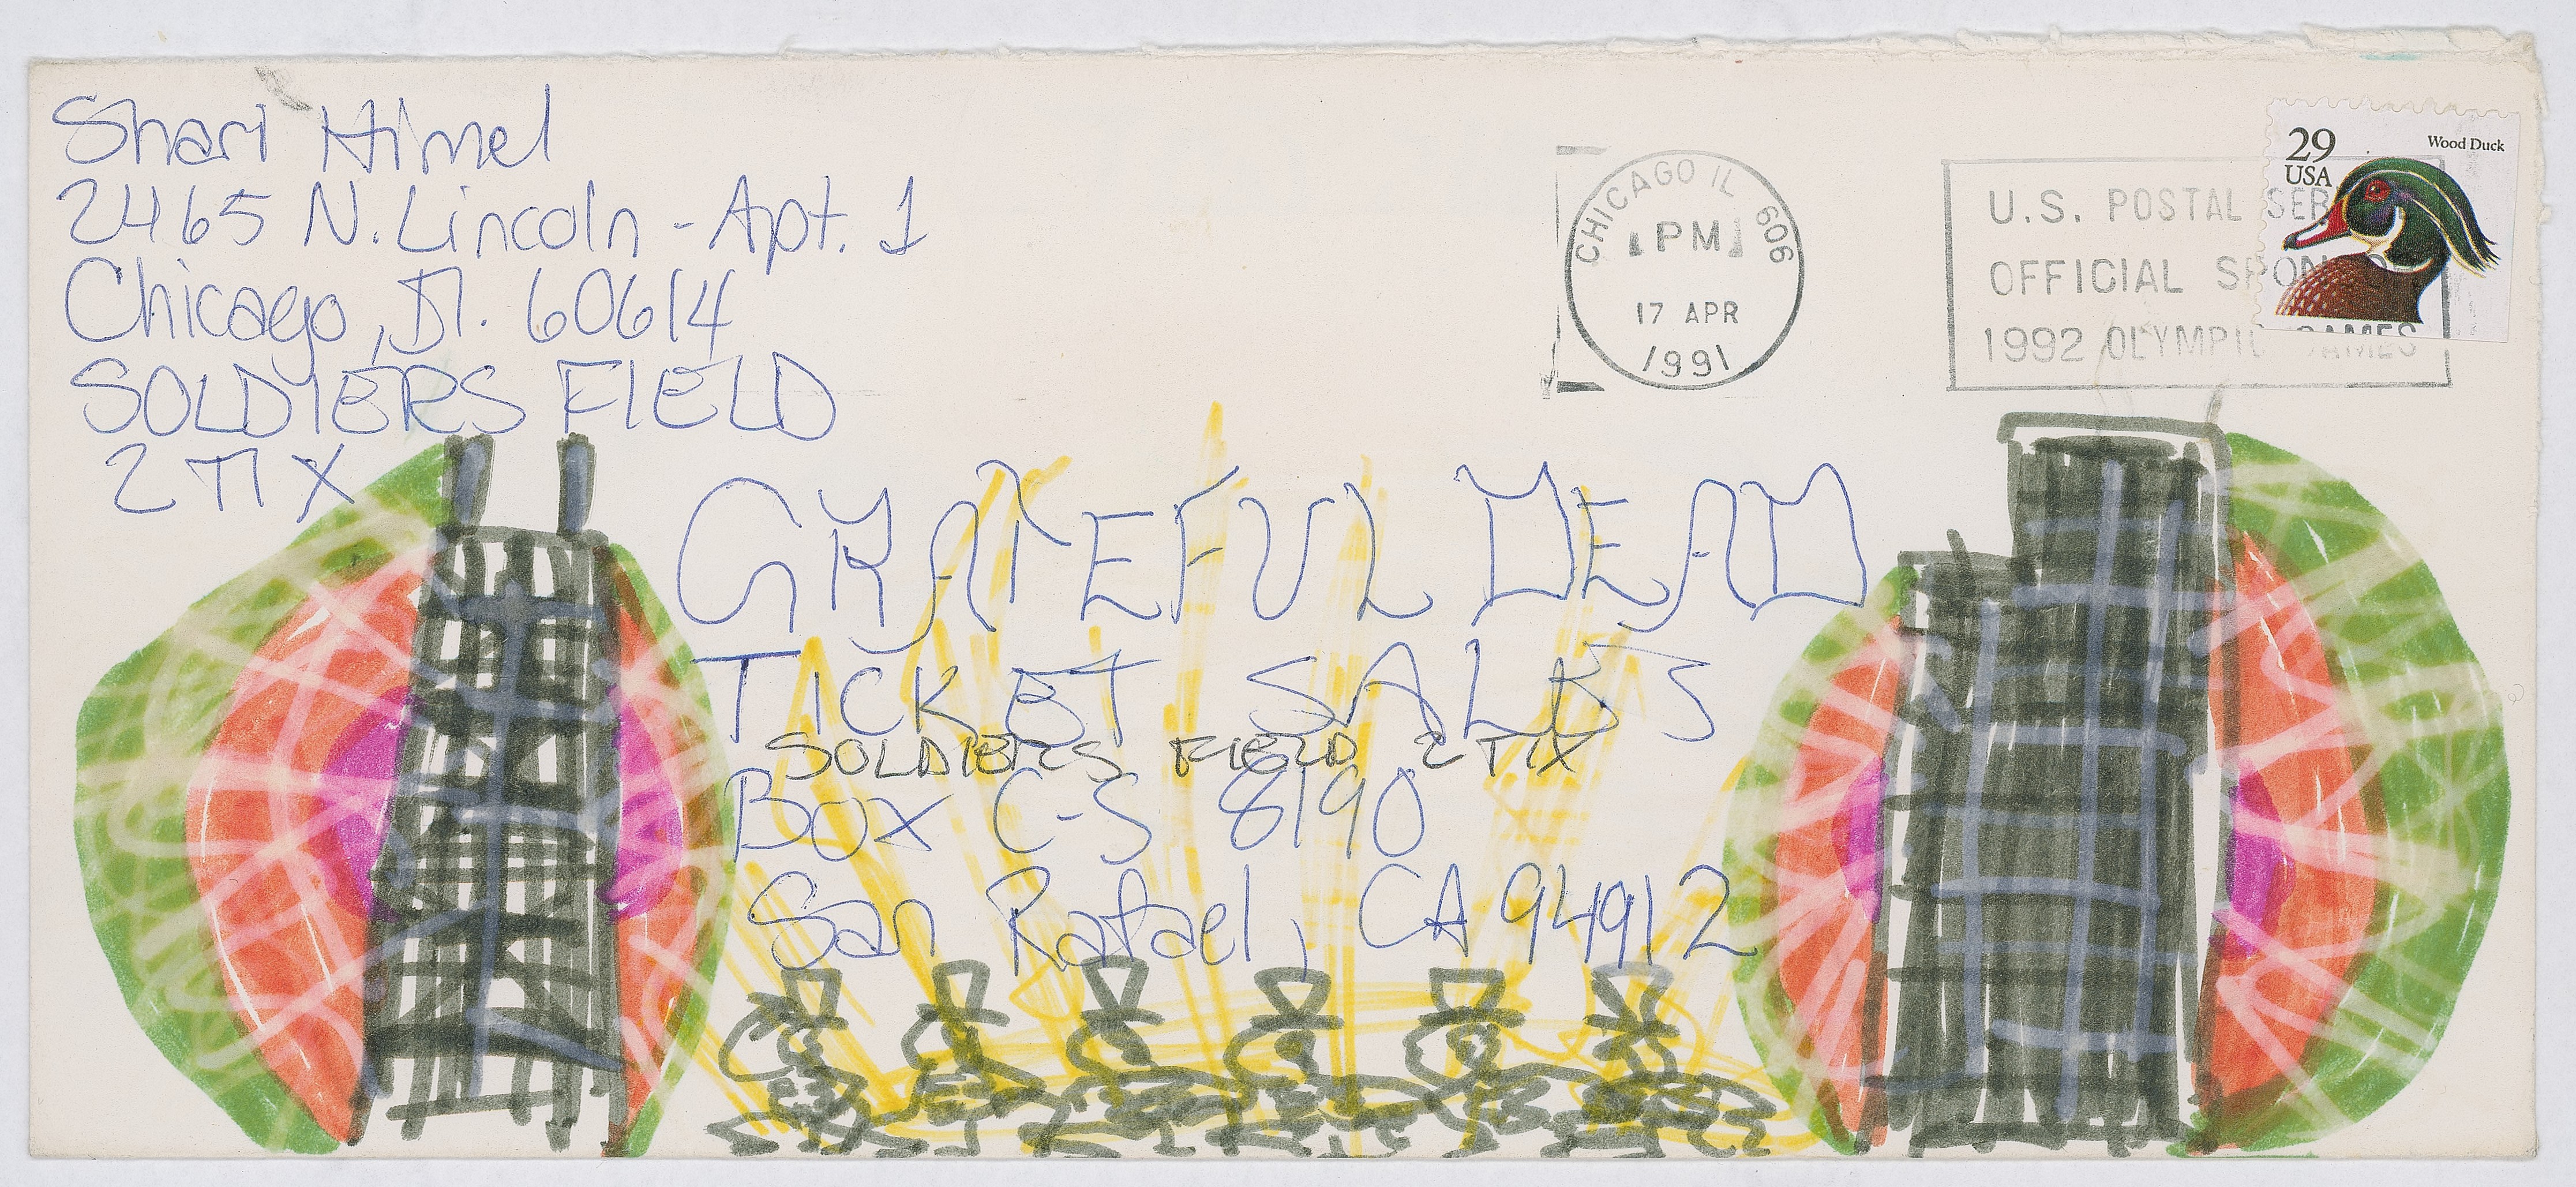 Shari Himel
2465 N. Lincoln - Apt. 1
Chicago, Il. 60614
SOLDIERS FIELD
2 TIX
CHICAGO IL 606
PM
17 APR
1991
U.S. POSTAL SER
OFFICIAL SPONSOR
1992 OLYMPIC GAMES
29
USA
Wood Duck
GRATEFUL DEAD
TICKET SALES
SOLDIERS FIELD 2 TIX
BOX C-S 8190
San Rafael, CA 94912